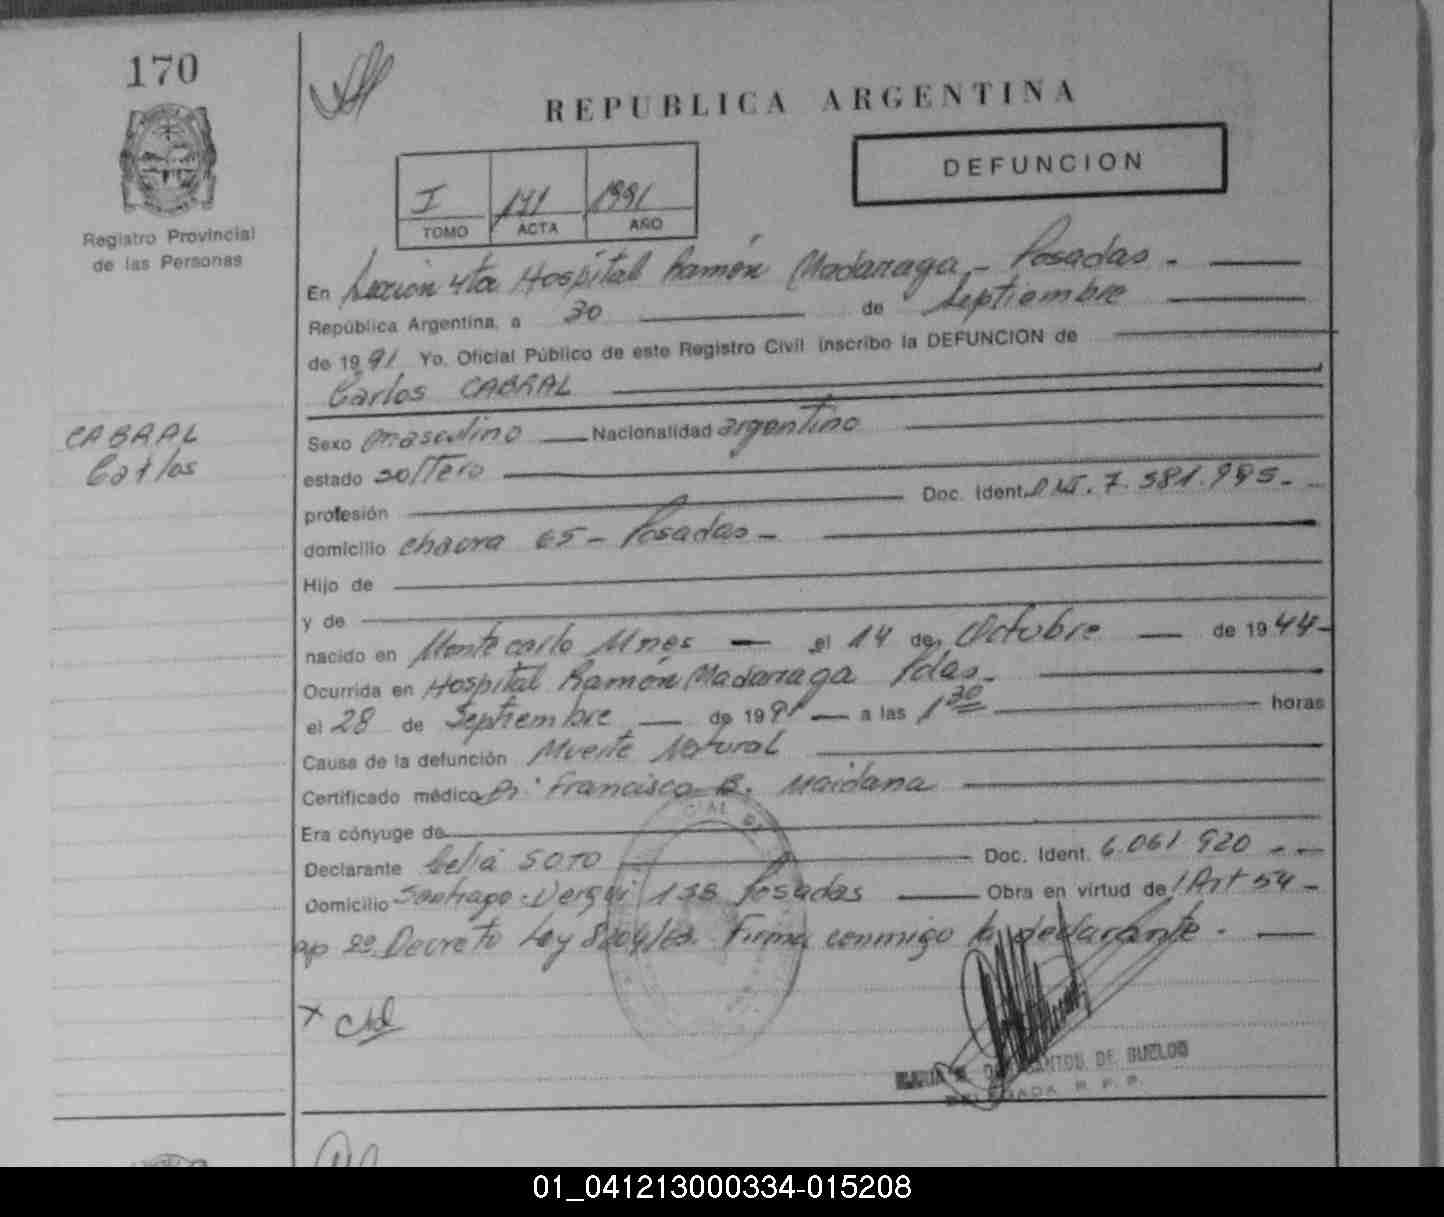 170
REPUBLICA ARGENTINA
DEFUNCION
I 171 1991
TOMO ACTA AÑO
Registro Provincial
de las Personas
En Sección 4ta Hospital Ramón Madarraga - Posadas -
República Argentina, a 30 de Septiembre
de 1991 Yo, Oficial Público de este Registro Civil inscribo la DEFUNCION de
Carlos CABRAL
CABRAL
Carlos
Sexo masculino Nacionalidad argentino
estado soltero
profesión Doc. Ident. DNI. 7.581.995.-
domicilio chacra 65 - Posadas -
Hijo de
y de
nacido en Montecarlo Mnes - el 14 de Octubre - de 1944-
Ocurrida en Hospital Ramón Madarraga Pdas.
el 28 de Septiembre - de 1991 - a las 1 30 horas
Causa de la defunción Muerte Natural
Certificado médico Dr. Francisco B. Maidana
Era cónyuge de
Declarante Celia SOTO Doc. Ident. 6.061.920 --
Domicilio Santiago Derqui 138 Posadas Obra en virtud de l Art 54 -
ap 2º Decreto Ley 8204/63. Firma conmigo la declarante. -
x
DOS SANTOS DE BUELOD
DELEGADA R. P. P.
01_041213000334-015208